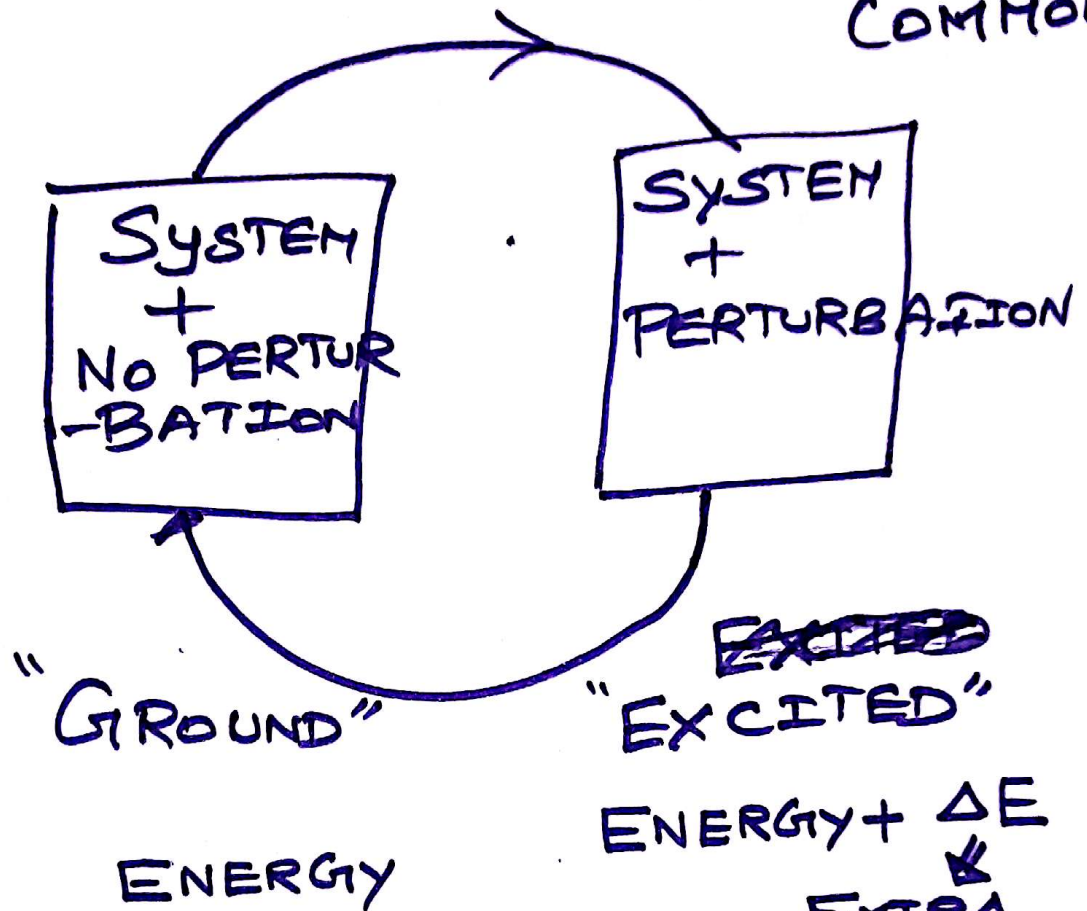 COMMO
SYSTEM
+
NO PERTUR
-BATION
SYSTEM
+
PERTURBATION
"GROUND"
EXCITED
"EXCITED"
ENERGY
ENERGY + ΔE
EXTRA